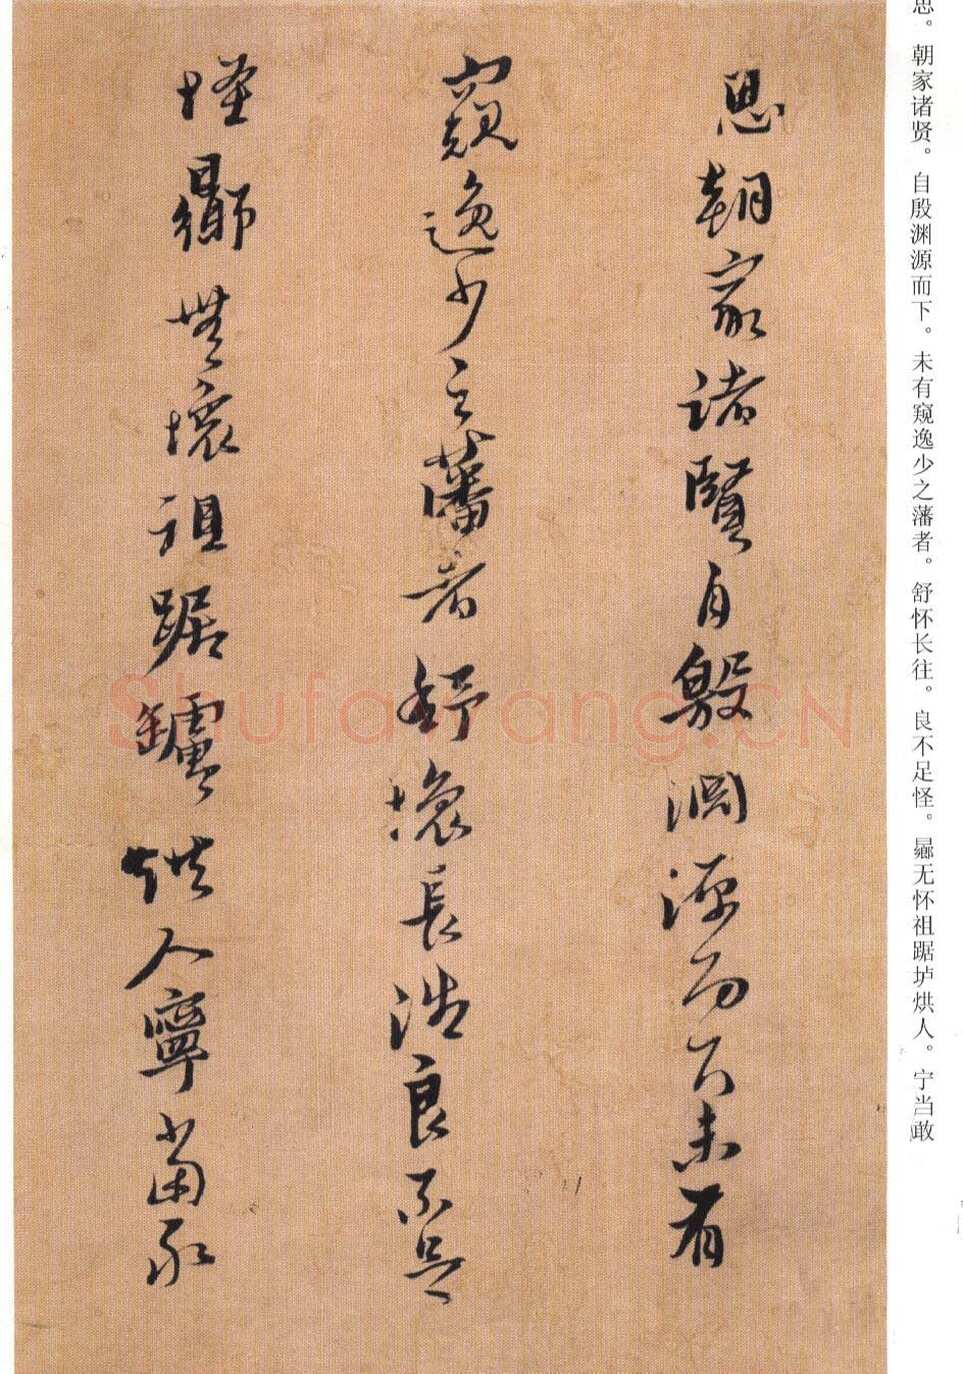 思。朝家诸贤。自殷渊源而下。未有窥逸少之藩者。舒怀长往。良不足怪。曏无怀祖踞垆烘人。宁当敢
思朝家諸賢自殷淵源而下未有
窺逸少之藩者舒懷長浩良不足
怪曏無懷祖踞罏烘人寧當
Shufawang.CN